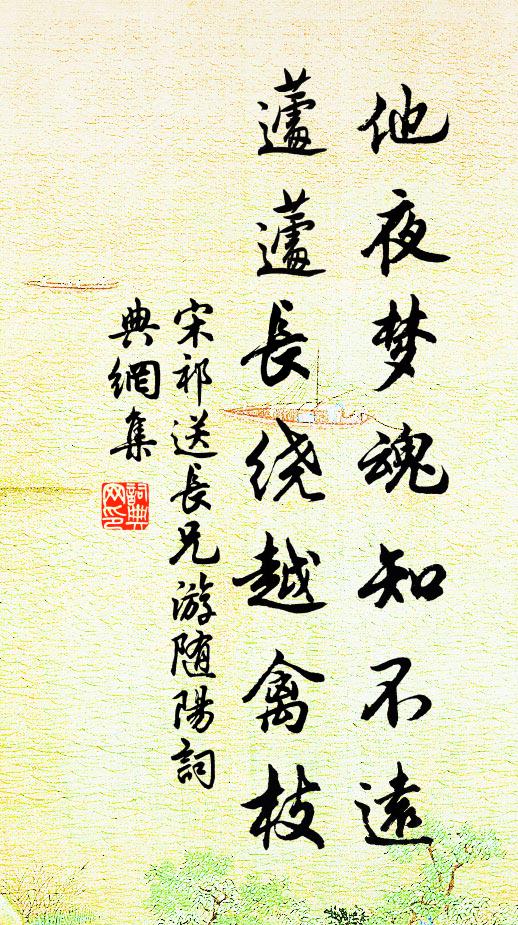 他夜梦魂知不遠
蘧蘧長绕越禽枝
宋祁送長兄游随陽詞
典網集
詞典网印